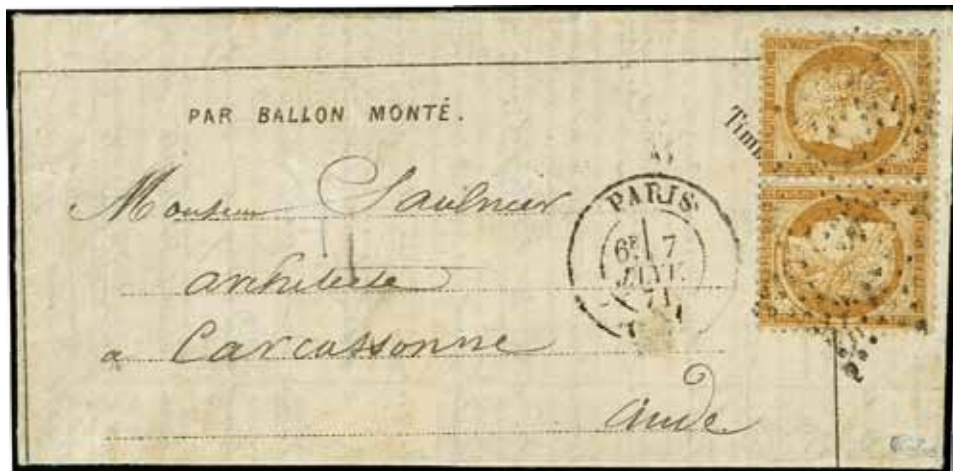 PAR BALLON MONTÉ.
Timb
Monsieur Saulnier
architecte
a Carcassonne
Aude
PARIS
6E 7
JANV.
71